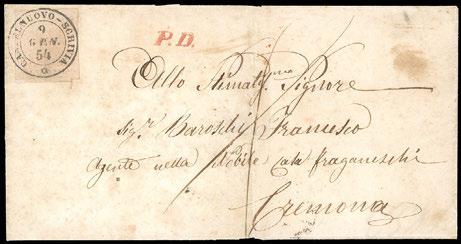 CASTELNUOVO-SCRIVIA
9
GEN.
54
P.D.
Allo Stimat.mo Signore
Sig.r Baroschi Francesco
Agente nella Nobile Casa Fraganeschi
Cremona